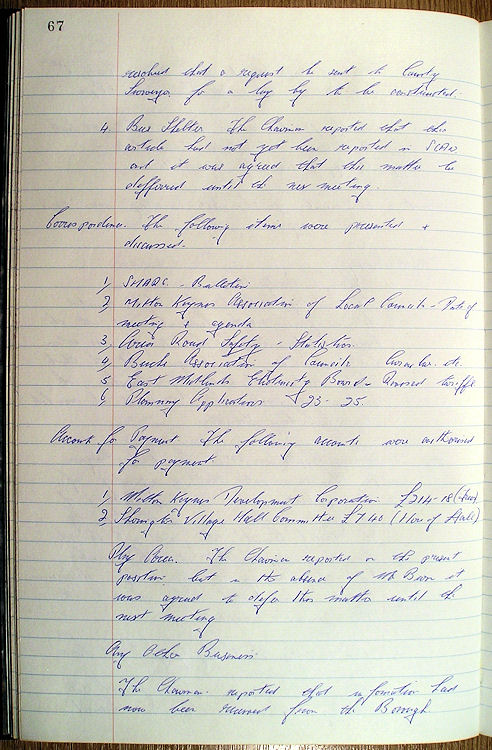 67
resolved that a request be sent to County
for a lay by to be constructed.
4. Bus Shelter. The Chairman reported that this
article had not yet been reported in SCAN
and it was agreed that this matter be
deffered until the nex meeting.
Correspondence. The following items were presented +
discussed.
1, - Bulletin
2, Milton Keynes Association of Local Councils - Date of
meeting & agenda
3, Road Safety - Statistics.
4, Bucks Association of Councils etc.
5, East Midlands Electricity Board - tariffs
6, Planning Applications 23 - 25.
Accounts for Payment. The following accounts were authorised
for payment.
1, Milton Keynes Development Corporation £214-18
2, Village Hall Committee £7.40 (Hire of Hall)
Play Area. The Chairman reported on the present
position but in the absence of Mr it
was agreed to defer this matter until the
next meeting
Any Other Business.
The Chairman reported that information had
now been received from the Borough